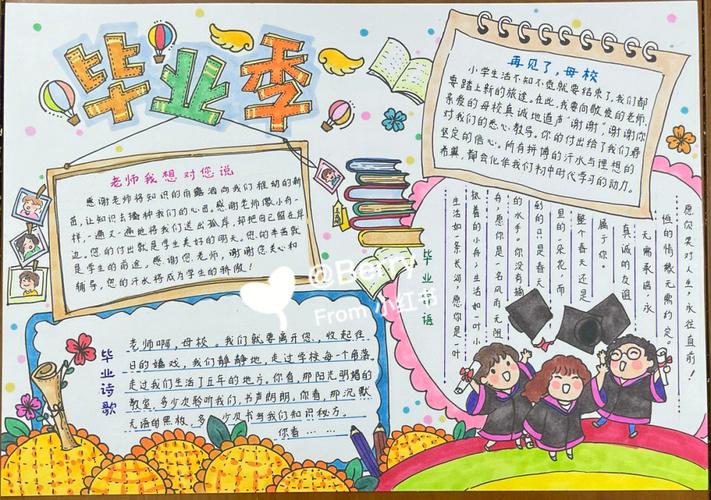 毕业季
再见了,母校
小学生活不知不觉就要结束了,我们都
要踏上新的旅途。在此,我要向敬爱的老师、
亲爱的母校真诚地道声"谢谢",谢谢你
对我们的悉心教导。你的付出给了我们最
坚定的信心。所有拼搏的汗水与理想的
希冀,都会化学我们初中时代学习的动力。
老师我想对您说
感谢老师将知识的雨露洒向我们稚幼的新
苗,让知识去播种我们的心田。感谢老师像小舟一
样,一遍又一遍地将我们送出孤岸,却把自己留在岸
边。您的付出就是学生美好的明天,您的
是学生的前途,感谢您,老师,谢谢您关心和
辅导,您的汗水将成为学生的骄傲!
毕业诗歌
老师啊,母校。我们就要离开您,收起往
日的嬉戏,我们静静地,走过学校每一个角落,
走过我们生活了五年的地方,你看,那阳光明媚的
教室,多少次聆听我们,书声朗朗,你看,那沉默
无语的黑板,多少次贝书当我们知识秘方。
你看……
毕业寄语
生活如一条长河,愿你是一叶
执着的小舟,生活如一叶小
舟,愿你是一名风雨无阻
的水手。你没有摘
到的只是春天
里的一朵花,而
整个春天还是
属于你。
真诚的友谊
无需承诺,永
恒的情散无需约定。
愿你笑对人生,永往直前!
@Berry
From 小红书